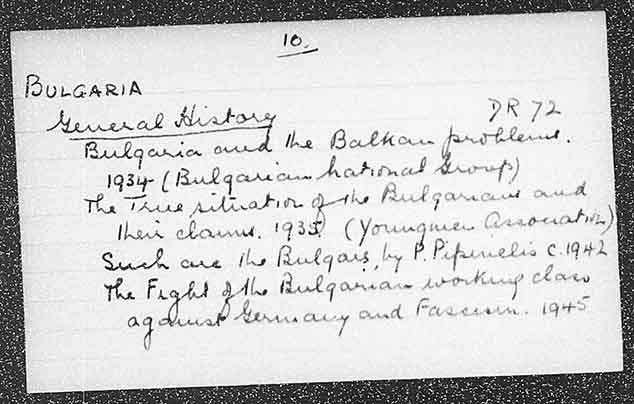 10.
BULGARIA
General History DR 72
Bulgaria and the Balkan problems.
1934 (Bulgarian National Group)
The True situation of the Bulgarians and
their claims. 1935 (Youngmen Association)
Such are the Bulgars, by P. Pipinelis c.1942
The Fight of the Bulgarian working class
against Germany and Fascism. 1945